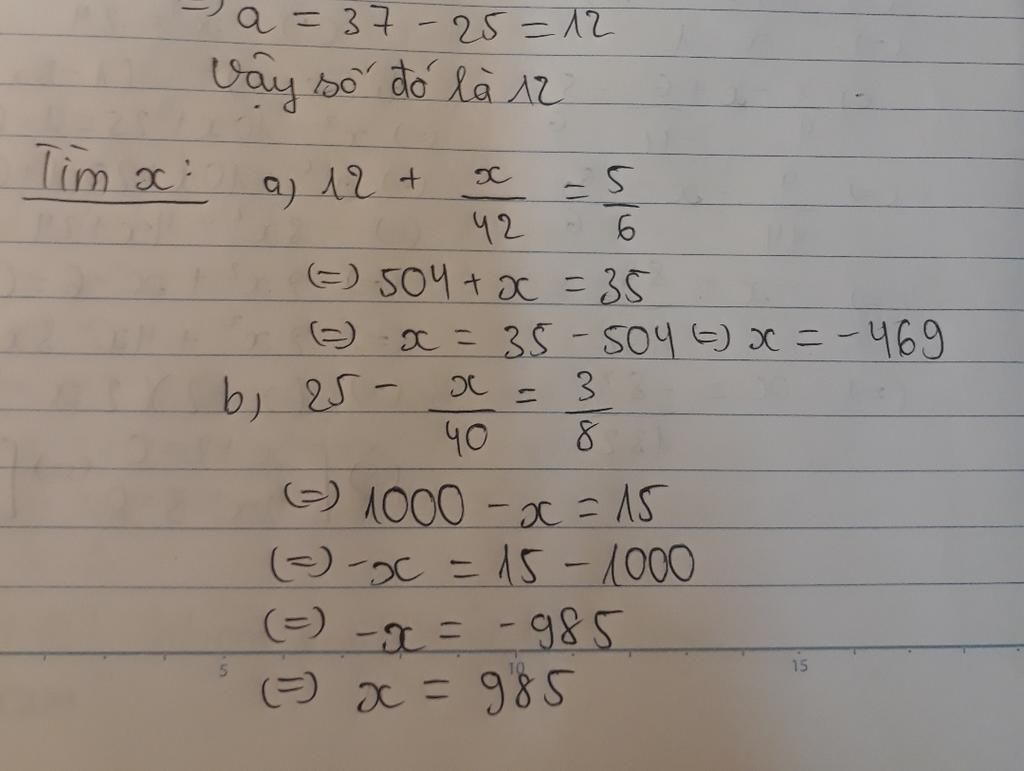 =) a = 37 - 25 = 12
Vậy số đó là 12
Tìm x: a, 12 + x/42 = 5/6
(=) 504 + x = 35
(=) x = 35 - 504 (=) x = -469
b, 25 - x/40 = 3/8
(=) 1000 - x = 15
(=) -x = 15 - 1000
(=) -x = -985
5 10 15
(=) x = 985